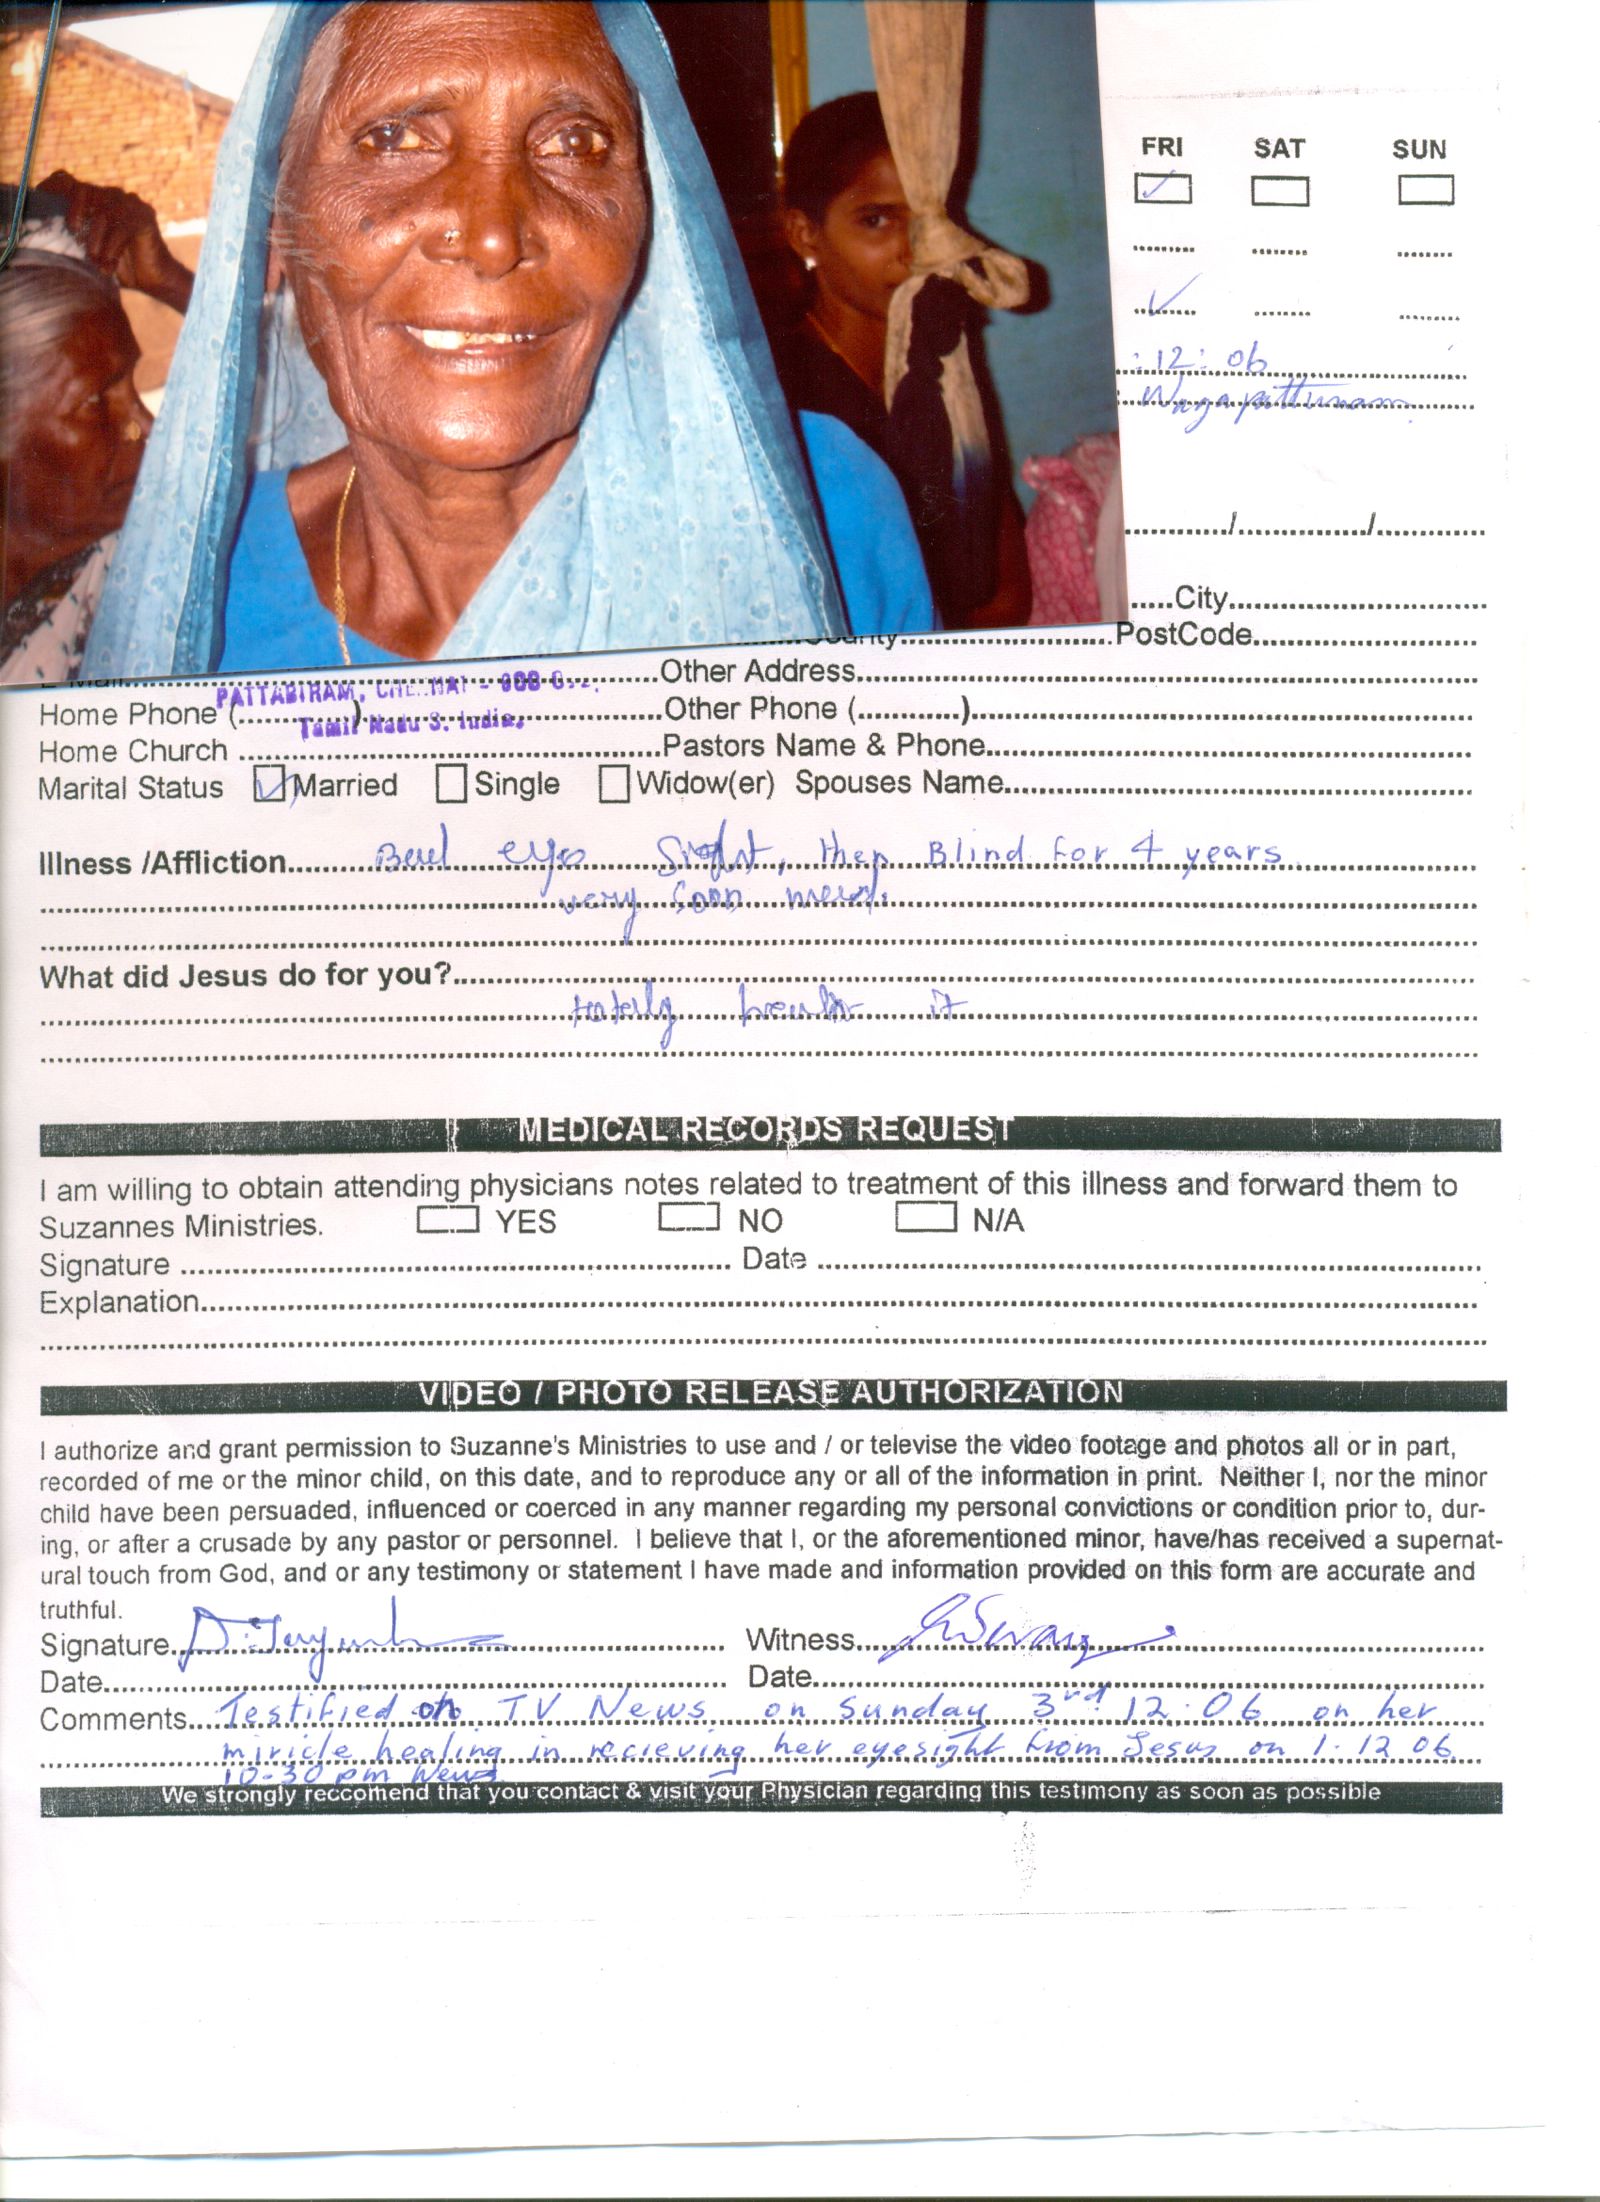 FRI SAT SUN
:12:06
Nagapattinam
/ /
City
County PostCode
Other Address
PATTABIRAM, CHENNAI - 600
Home Phone ( ) Other Phone ( )
Tamil Nadu S. India.
Home Church Pastors Name & Phone
Marital Status Married Single Widow(er) Spouses Name
Illness /Affliction eye Sight, then Blind for 4 years
very soon
What did Jesus do for you?
totally it
MEDICAL RECORDS REQUEST
I am willing to obtain attending physicians notes related to treatment of this illness and forward them to
Suzannes Ministries. YES NO N/A
Signature Date
Explanation
VIDEO / PHOTO RELEASE AUTHORIZATION
I authorize and grant permission to Suzanne's Ministries to use and / or televise the video footage and photos all or in part,
recorded of me or the minor child, on this date, and to reproduce any or all of the information in print. Neither I, nor the minor
child have been persuaded, influenced or coerced in any manner regarding my personal convictions or condition prior to, dur-
ing, or after a crusade by any pastor or personnel. I believe that I, or the aforementioned minor, have/has received a supernat-
ural touch from God, and or any testimony or statement I have made and information provided on this form are accurate and
truthful.
Signature Witness
Date Date
Comments Testified on TV News on Sunday 3rd 12.06 on her
miricle healing in recieving her eyesight from Jesus on 1.12 06
10-30 pm News
We strongly reccomend that you contact & visit your Physician regarding this testimony as soon as possible